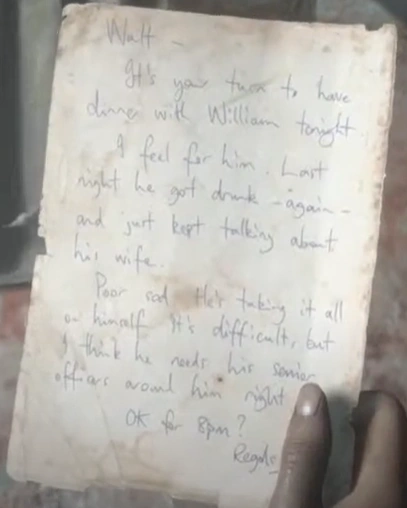 Walt -
It's your turn to have
dinner with William tonight.
I feel for him. Last
night he got drunk - again -
and just kept talking about
his wife.
Poor sod. He's taking it all
on himself. It's difficult, but
I think he needs his senior
officers around him right
OK for 8pm?